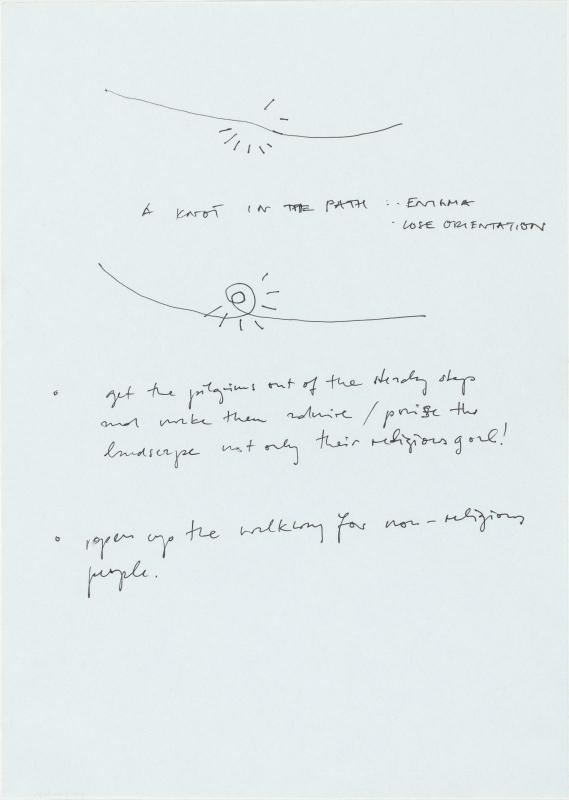 A KNOT IN THE PATH : · ENIGMA
· LOSE ORIENTATION
° get the pilgrims out of the steady steps
and make them admire / praise the
landscape not only their religious goal!
° open up the walkway for non-religious
people.